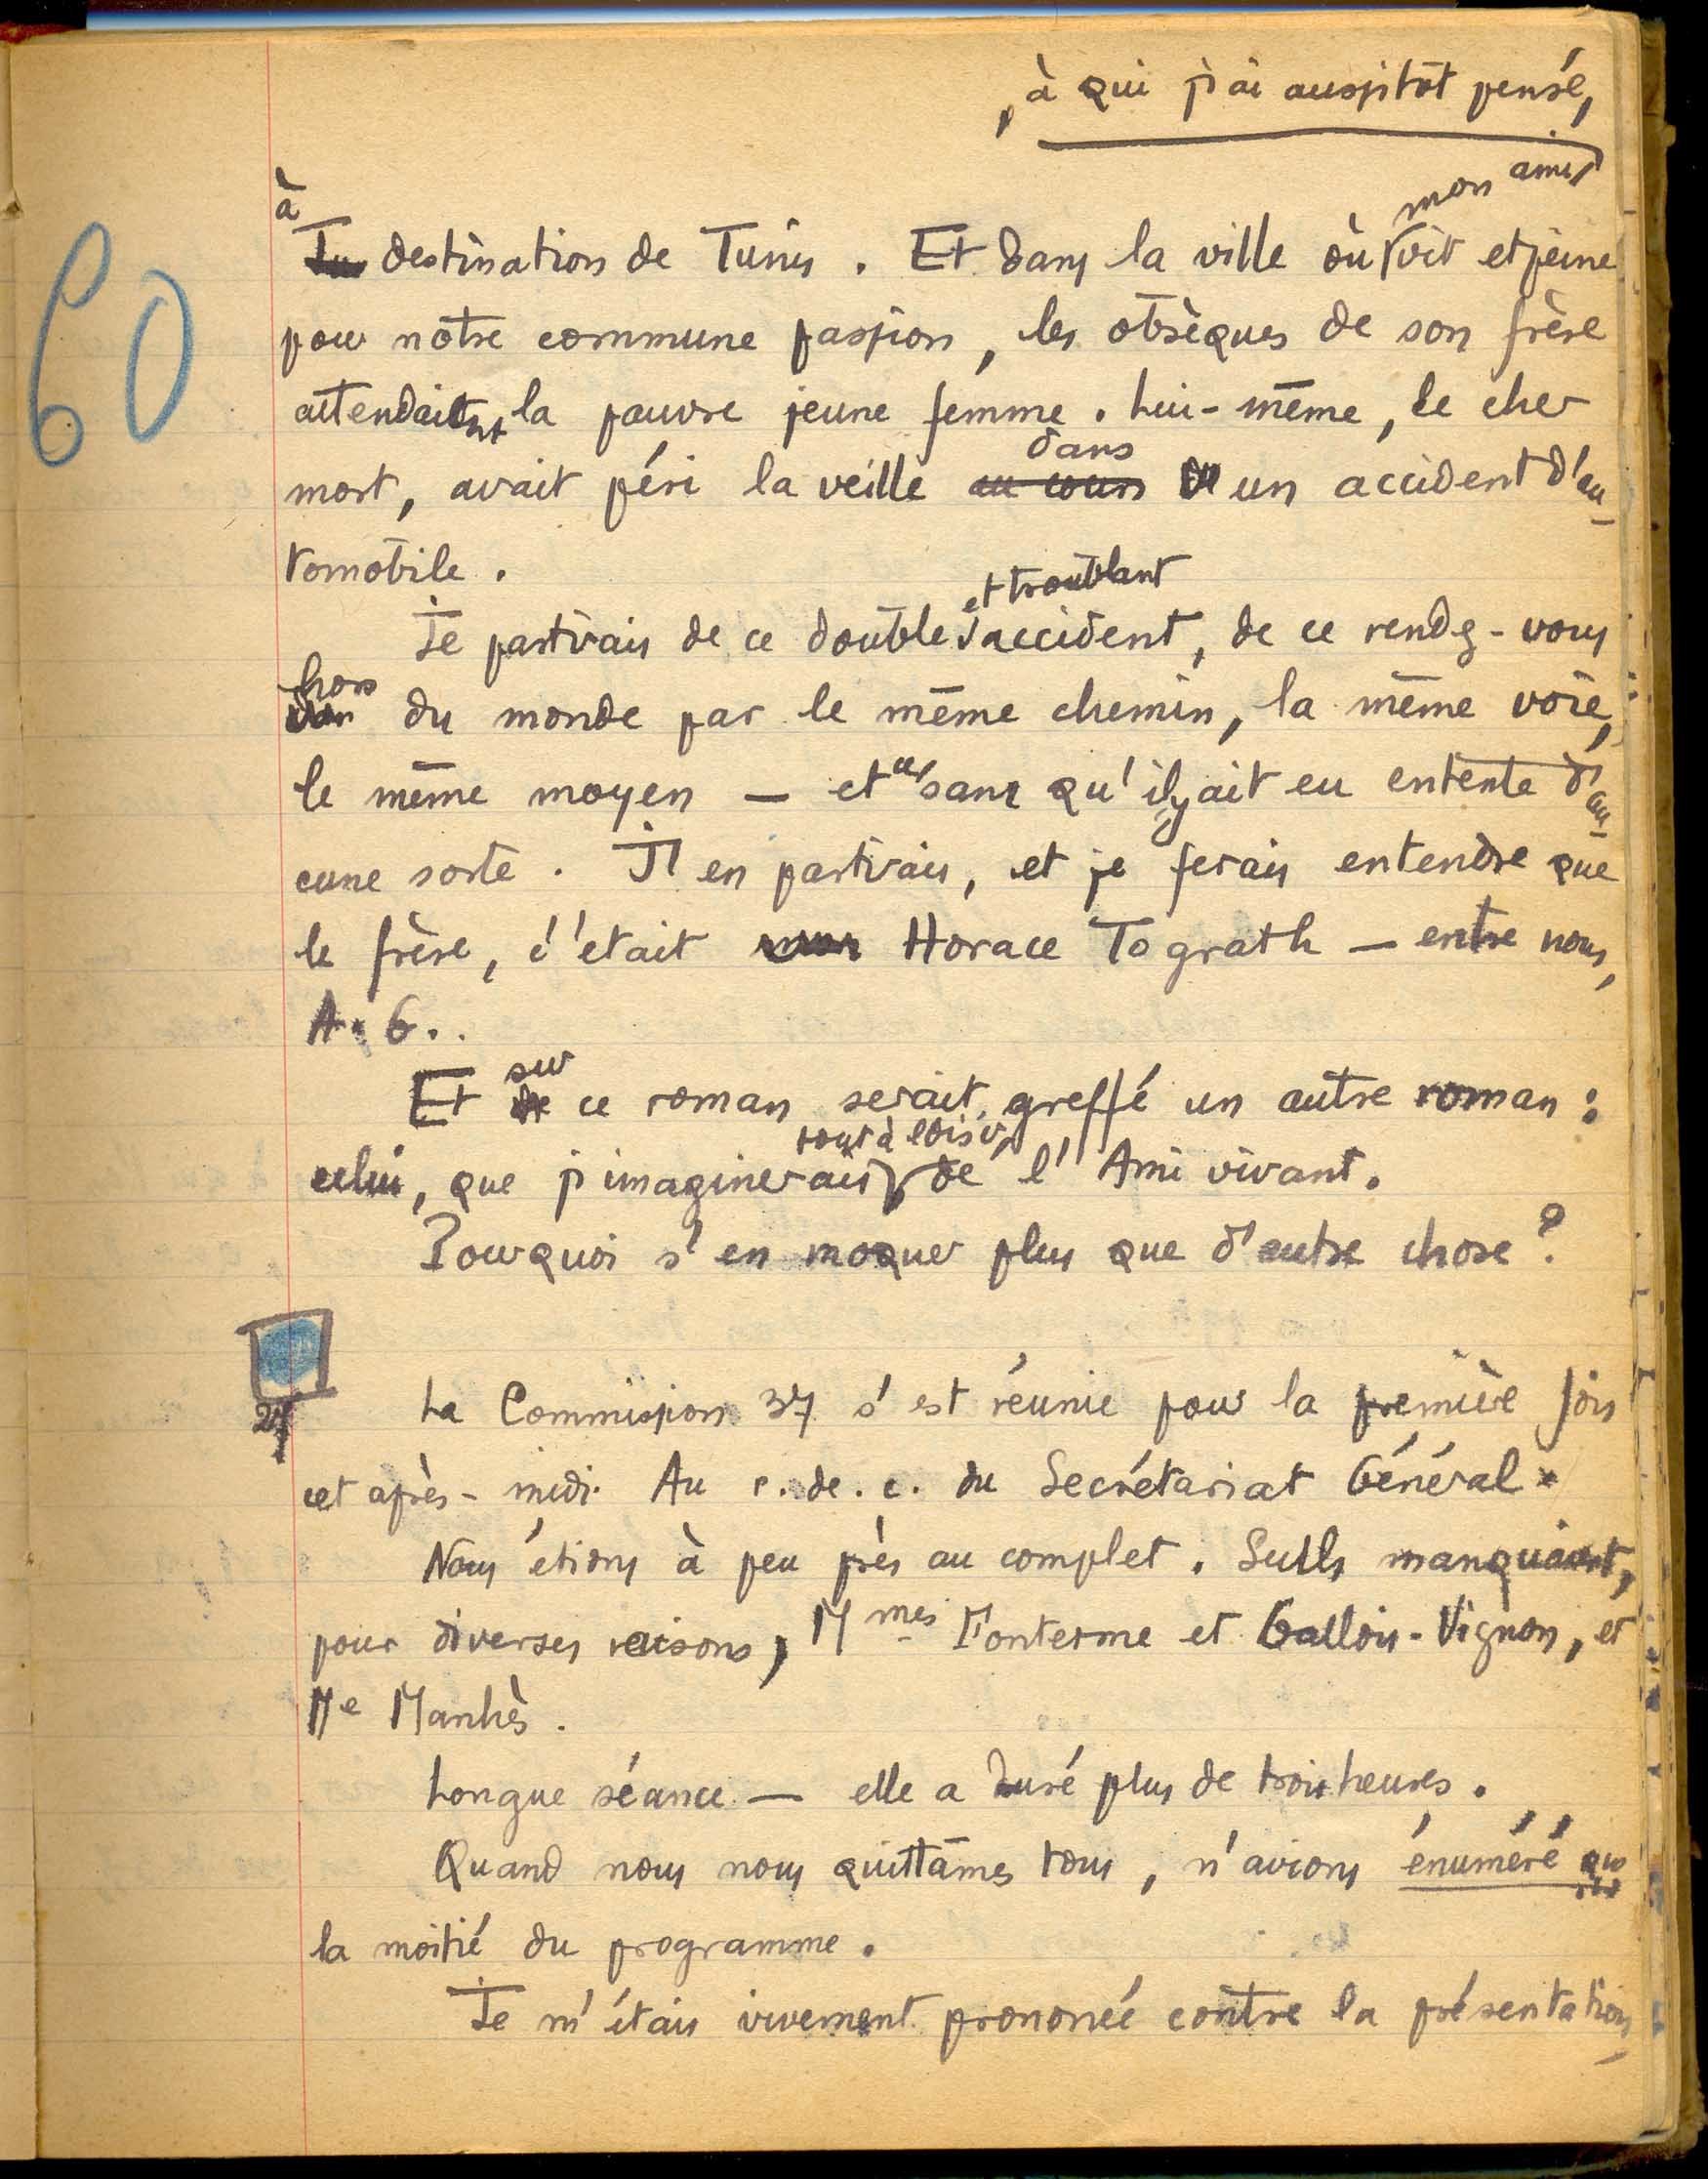 , à qui j'ai aussitôt pensé,
mon ami,
à
60
destination de Tunis. Et dans la ville où vit et peine
pour notre commune passion, les obsèques de son frère
attendaient la pauvre jeune femme. Lui-même, le cher
dans
mort, avait péri la veille au cours un accident d'au-
tomobile.
et troublant
Je partirais de ce double accident, de ce rendez-vous
hors
du monde par le même chemin, la même voie,
le même moyen — et ce, sans qu'il y ait eu entente d'au-
cune sorte. J'en partirais, et je ferais entendre que
le frère, c'était Horace Tograth — entre nous,
A. G..
sur
Et de ce roman serait greffé un autre roman :
tout à loisir,
celui, que j'imaginerais de l'Ami vivant.
Pourquoi s'en moquer plus que d'autre chose ?
27
La Commission 37 s'est réunie pour la première fois
cet après-midi. Au r. de. c. du Secrétariat Général.
Nous étions à peu près au complet. Seuls manquaient,
pour diverses raisons, Mmes Fonterme et Gallois-Vignon, et
Me Manhès.
Longue séance — elle a duré plus de trois heures.
Quand nous nous quittâmes tous, n'avions énuméré que
la moitié du programme.
Je m'étais vivement prononcé contre la présentation